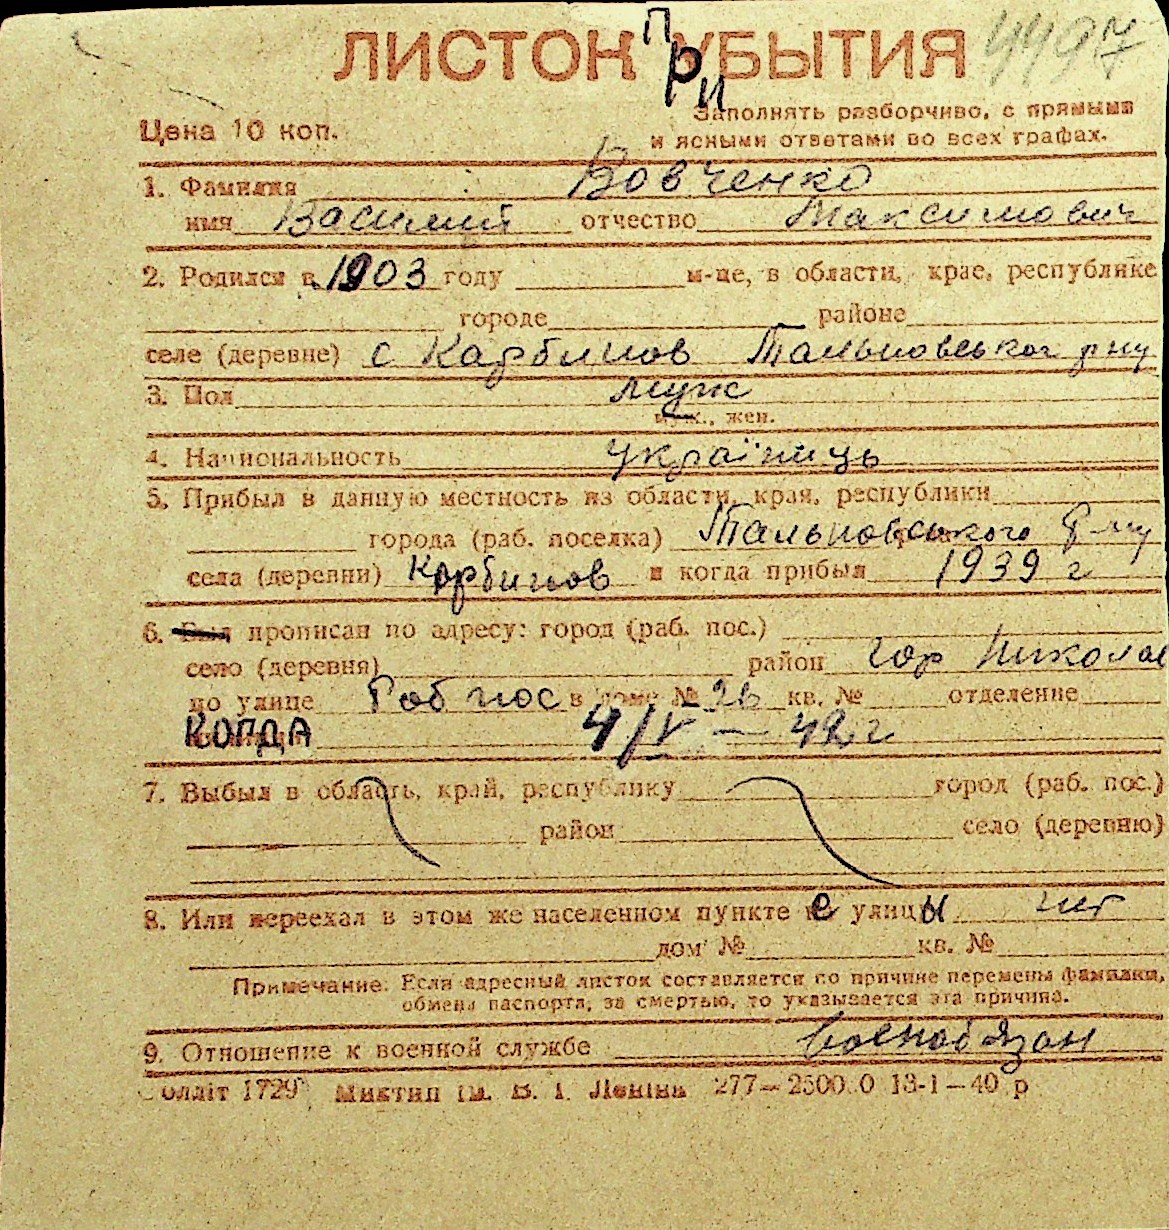 4497
ЛИСТОК ПРИБЫТИЯ
Заполнять разборчиво, с прямыми
Цена 10 коп.
и ясными ответами во всех графах.
1. Фамилия Вовченко
имя Василий отчество Максимович
2. Родился в 1903 году м-це, в области, крае, республике
городе районе
селе (деревне) с Карбинов Тальновського р ну
3. Пол муж
муж., жен.
4. Национальность українець
5. Прибыл в данную местность из области, края, республики
города (раб. поселка) Тальновського р-ну
села (деревни) Карбинов и когда прибыл 1939 г
6. Был прописан по адресу: город (раб. пос.)
село (деревня) район гор Николае
по улице Раб пос в доме № 26 кв. № отделение
КОГДА 4/V — 42 г
7. Выбыл в область, край, республику город (раб. пос.)
район село (деревню)
8. Или переехал в этом же населенном пункте с улицы нет
дом № кв. №
Примечание: Если адресный листок составляется по причине перемены фамилии,
обмена паспорта, за смертью, то указывается эта причина.
9. Отношение к военной службе военобязан
олліт 1729 Миктип ім. В. І. Леніна 277—2500.0 13-1—40 р